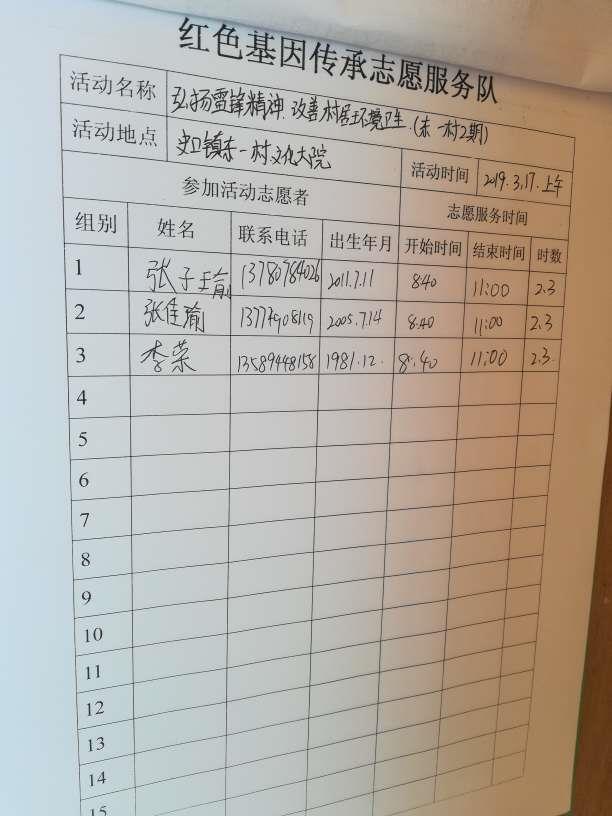 红色基因传承志愿服务队
活动名称 弘扬雷锋精神.改善村居环境卫生.(东一村2期)
活动地点 史口镇东一村文化大院 活动时间 2019.3.17.上午
参加活动志愿者 志愿服务时间
组别 姓名 联系电话 出生年月 开始时间 结束时间 时数
1 张子瑜 13780784026 2011.7.11 8:40 11:00 2.3
2 张佳瑜 13774908119 2005.7.14 8:40 11:00 2.3
3 李荣 13589448158 1981.12. 8:40 11:00 2.3
4
5
6
7
8
9
10
11
12
13
14
15